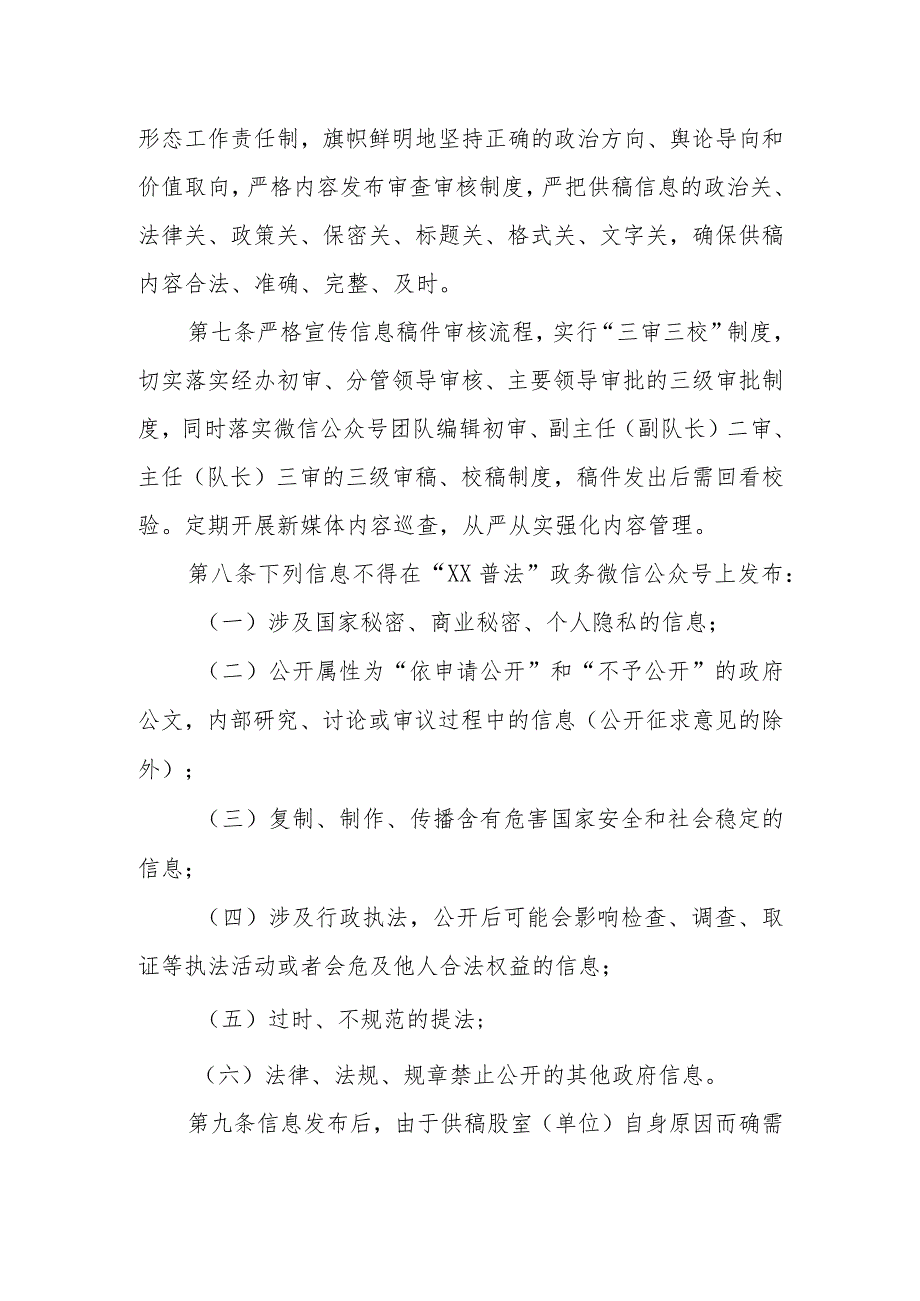 形态工作责任制，旗帜鲜明地坚持正确的政治方向、舆论导向和
价值取向，严格内容发布审查审核制度，严把供稿信息的政治关、
法律关、政策关、保密关、标题关、格式关、文字关，确保供稿
内容合法、准确、完整、及时。
第七条严格宣传信息稿件审核流程，实行“三审三校”制度，
切实落实经办初审、分管领导审核、主要领导审批的三级审批制
度，同时落实微信公众号团队编辑初审、副主任（副队长）二审、
主任（队长）三审的三级审稿、校稿制度，稿件发出后需回看校
验。定期开展新媒体内容巡查，从严从实强化内容管理。
第八条下列信息不得在“XX普法”政务微信公众号上发布：
（一）涉及国家秘密、商业秘密、个人隐私的信息；
（二）公开属性为“依申请公开”和“不予公开”的政府
公文，内部研究、讨论或审议过程中的信息（公开征求意见的除
外）；
（三）复制、制作、传播含有危害国家安全和社会稳定的
信息；
（四）涉及行政执法，公开后可能会影响检查、调查、取
证等执法活动或者会危及他人合法权益的信息；
（五）过时、不规范的提法；
（六）法律、法规、规章禁止公开的其他政府信息。
第九条信息发布后，由于供稿股室（单位）自身原因而确需